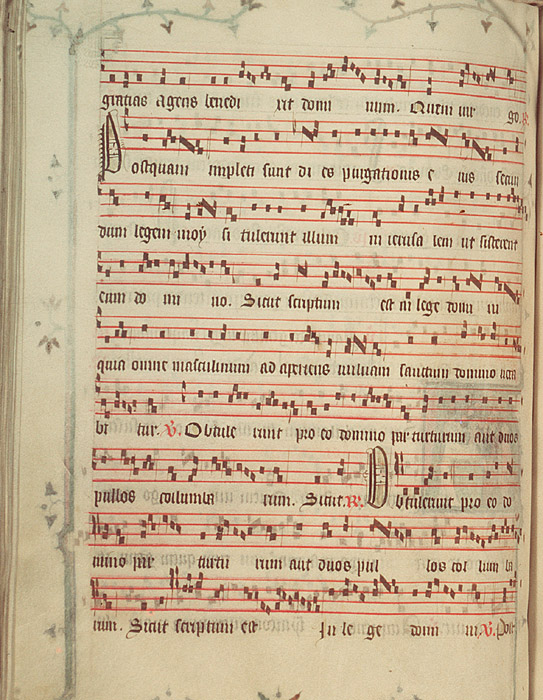 gratias agens benedi xit domi num. Quem vir go. R.
Postquam impleti sunt di es purgationis e ius secun
dum legem moy si tulerunt illum in ierusa lem ut sisterent
eum do mi no. Sicut scriptum est in lege domi ni
quia omne masculinum ad aperiens vulvam sanctum domino voca
bi tur. V. Obtule runt pro eo domino par turturum aut duos
pullos columba rum. Sicut. R. Obtulerunt pro eo do
mino par turtu rum aut duos pul los co lum ba
rum. Sicut scriptum est In le ge domi ni. V. Post